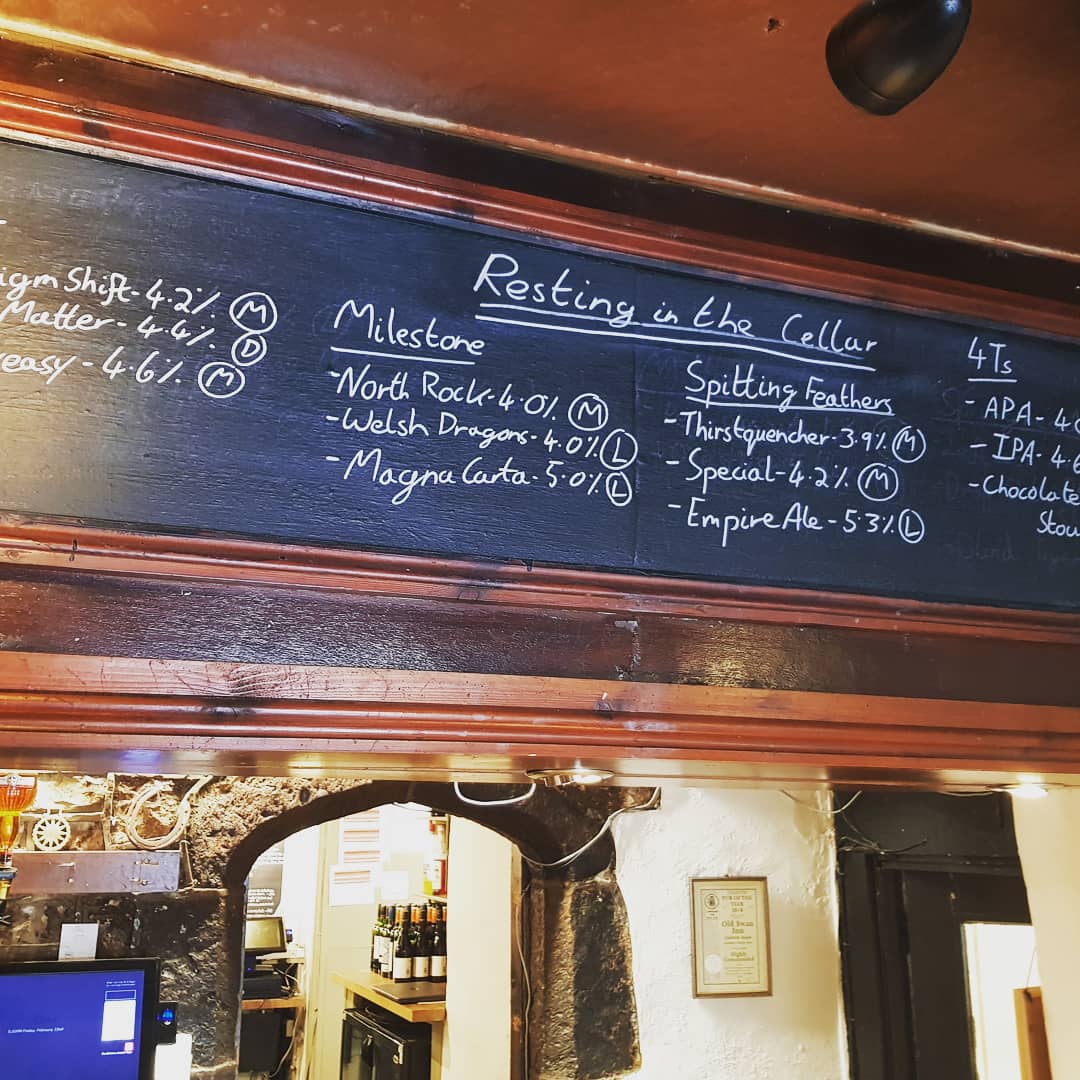 Shift - 4.2% M
Matter - 4.4% D
easy - 4.6% M
Resting in the Cellar
Milestone
- North Rock - 4.0% M
- Welsh Dragons - 4.0% L
- Magna Carta - 5.0% L
Spitting Feathers
- Thirstquencher - 3.9% M
- Special - 4.2% M
- Empire Ale - 5.3% L
4Ts
- APA - 4
- IPA - 4.6
- Chocolate
Stou
PUB OF THE
YEAR
Old Swan
Inn
Highly
Commended